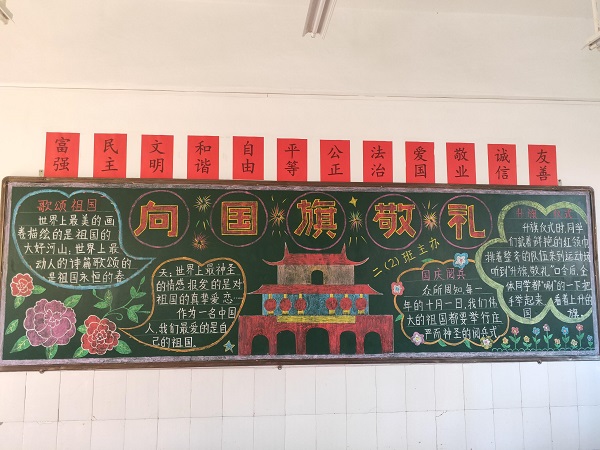 富强
民主
文明
和谐
自由
平等
公正
法治
爱国
敬业
诚信
友善
向国旗敬礼
二(2)班主办
歌颂祖国
世界上最美的画
卷描绘的是祖国的
大好河山,世界上最
动人的诗篇歌颂的
是祖国永恒的春
天,世界上最神圣
的情感报发的是对
祖国的真挚爱恋
作为一名中国
人,我们最爱的是自
己的祖国.
国庆阅兵
众所周知,每一
年的十月一日,我们伟
大的祖国都要举行庄
严而神圣的阅兵式
升旗仪式
升旗仪式时,同学
们戴着鲜艳的红领巾
排着整齐的队伍来到运动
听到"升旗,敬礼"口令后,全
体同学都"唰"的一下把
手举起来,看着上升的
国旗.